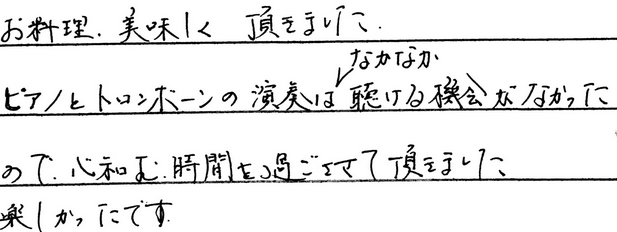 お料理、美味しく 頂きました.
なかなか
ピアノとトロンボーンの演奏は聴ける機会がなかった
ので、心和む時間を過ごさせて頂きました
楽しかったです.